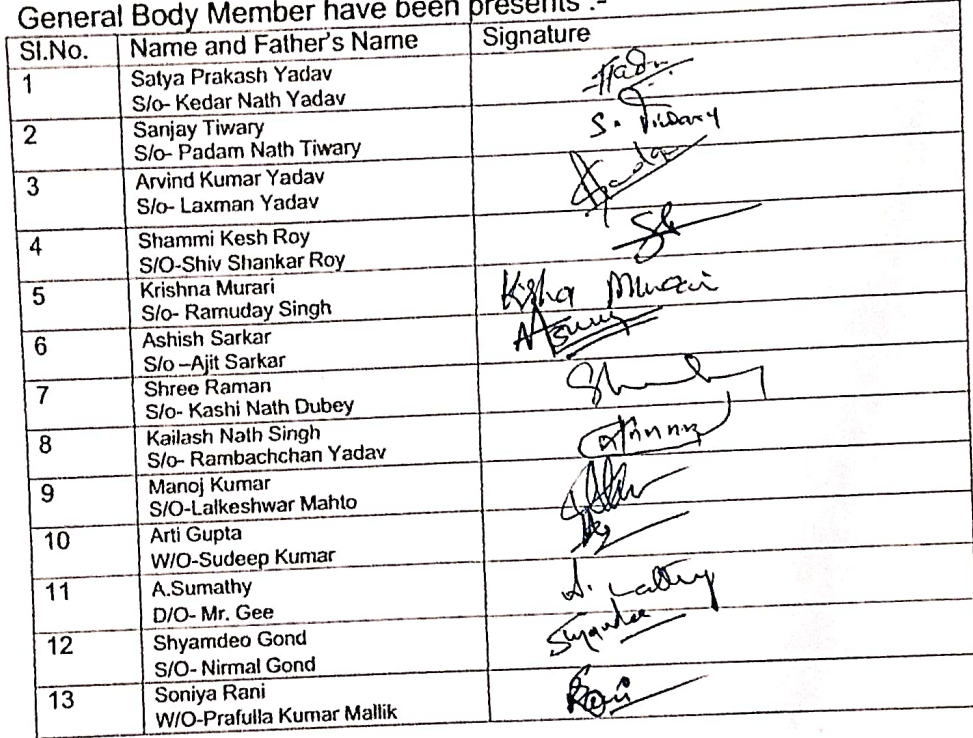 General Body Member have been presents :-
Sl.No. Name and Father's Name Signature
1 Satya Prakash Yadav
S/o- Kedar Nath Yadav
2 Sanjay Tiwary S. Tiwary
S/o- Padam Nath Tiwary
3 Arvind Kumar Yadav
S/o- Laxman Yadav
4 Shammi Kesh Roy
S/O-Shiv Shankar Roy
5 Krishna Murari
S/o- Ramuday Singh
6 Ashish Sarkar
S/o –Ajit Sarkar
7 Shree Raman
S/o- Kashi Nath Dubey
8 Kailash Nath Singh
S/o- Rambachchan Yadav
9 Manoj Kumar
S/O-Lalkeshwar Mahto
10 Arti Gupta
W/O-Sudeep Kumar
11 A.Sumathy
D/O- Mr. Gee
12 Shyamdeo Gond
S/O- Nirmal Gond
13 Soniya Rani
W/O-Prafulla Kumar Mallik